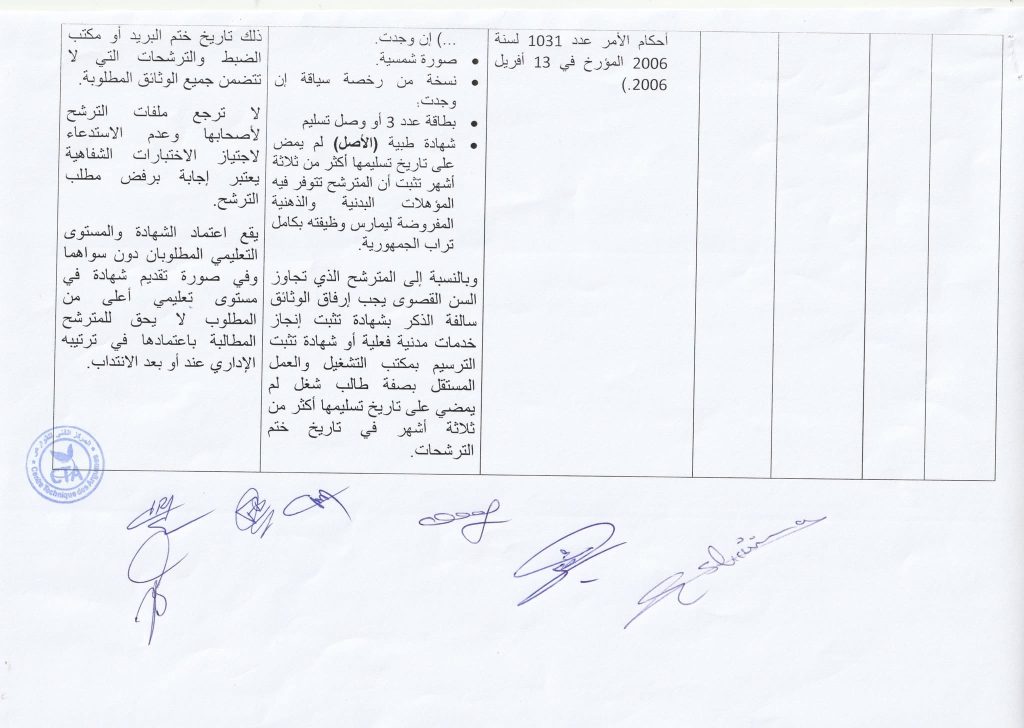 أحكام الأمر عدد 1031 لسنة
2006 المؤرخ في 13 أفريل
2006.)
...) إن وجدت.
• صورة شمسية.
• نسخة من رخصة سياقة إن
وجدت.
• بطاقة عدد 3 أو وصل تسليم
• شهادة طبية (الأصل) لم يمض
على تاريخ تسليمها أكثر من ثلاثة
أشهر تثبت أن المترشح تتوفر فيه
المؤهلات البدنية والذهنية
المفروضة ليمارس وظيفته بكامل
تراب الجمهورية.
وبالنسبة إلى المترشح الذي تجاوز
السن القصوى يجب إرفاق الوثائق
سالفة الذكر بشهادة تثبت إنجاز
خدمات مدنية فعلية أو شهادة تثبت
الترسيم بمكتب التشغيل والعمل
المستقل بصفة طالب شغل لم
يمضي على تاريخ تسليمها أكثر من
ثلاثة أشهر في تاريخ ختم
الترشحات.
ذلك تاريخ ختم البريد أو مكتب
الضبط والترشحات التي لا
تتضمن جميع الوثائق المطلوبة.
لا ترجع ملفات الترشح
لأصحابها وعدم الاستدعاء
لاجتياز الاختبارات الشفاهية
يعتبر إجابة برفض مطلب
الترشح.
يقع اعتماد الشهادة والمستوى
التعليمي المطلوبان دون سواهما
وفي صورة تقديم شهادة في
مستوى تعليمي أعلى من
المطلوب لا يحق للمترشح
المطالبة باعتمادها في ترتيبه
الإداري عند أو بعد الانتداب.
المركز الفني
CTA
Centre Technique des